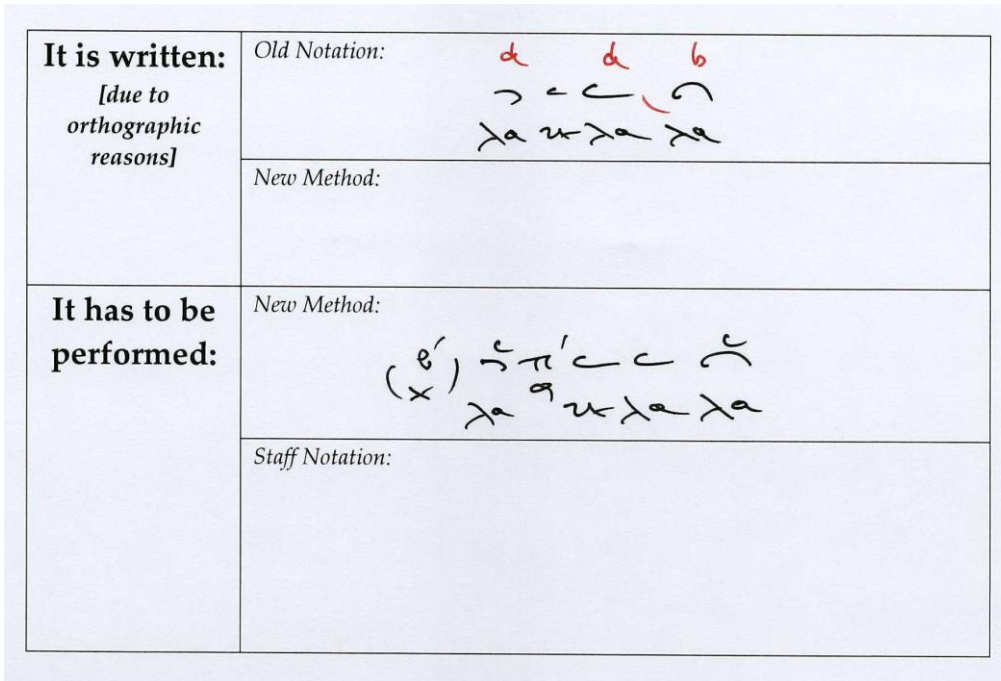 It is written:
[due to
orthographic
reasons]
Old Notation:
d d b
λα
λα λα
New Method:
It has to be
performed:
New Method:
λα
λα λα
Staff Notation: